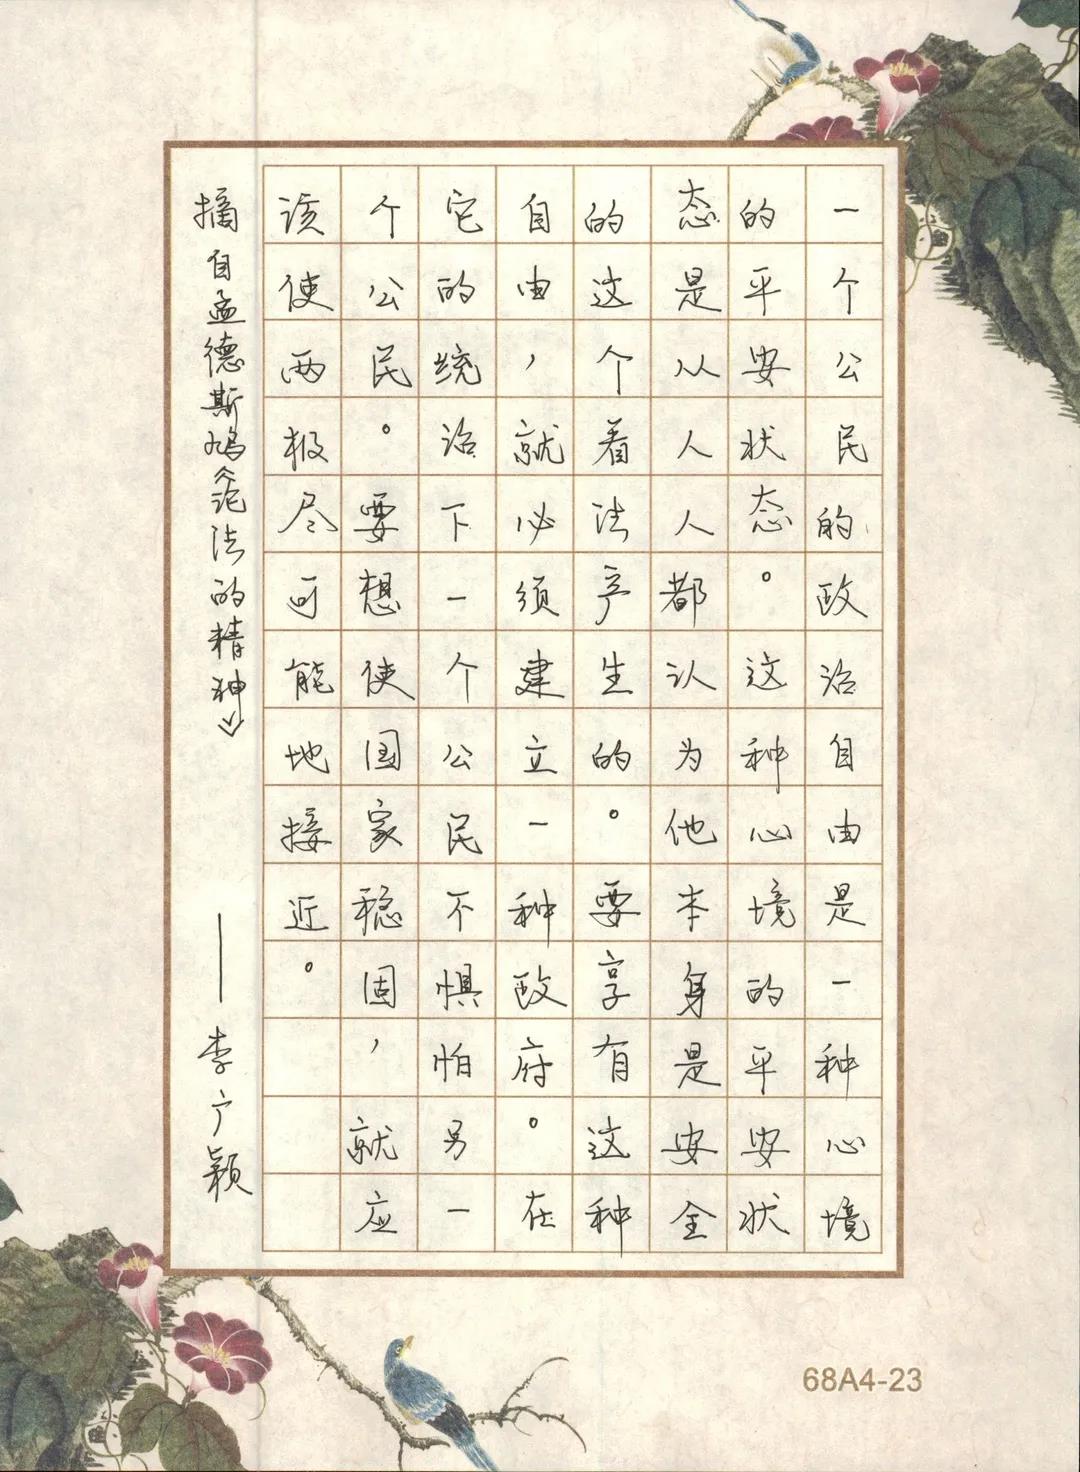 一个公民的政治自由是一种心境
的平安状态。这种心境的平安状
态是从人人都认为他本身是安全
的这个着法产生的。要享有这种
自由，就必须建立一种政府。在
它的统治下一个公民不惧怕另一
个公民。要想使国家稳固，就应
该使两极尽可能地接近。
摘自孟德斯鸠《论法的精神》 ——李广颖
68A4-23